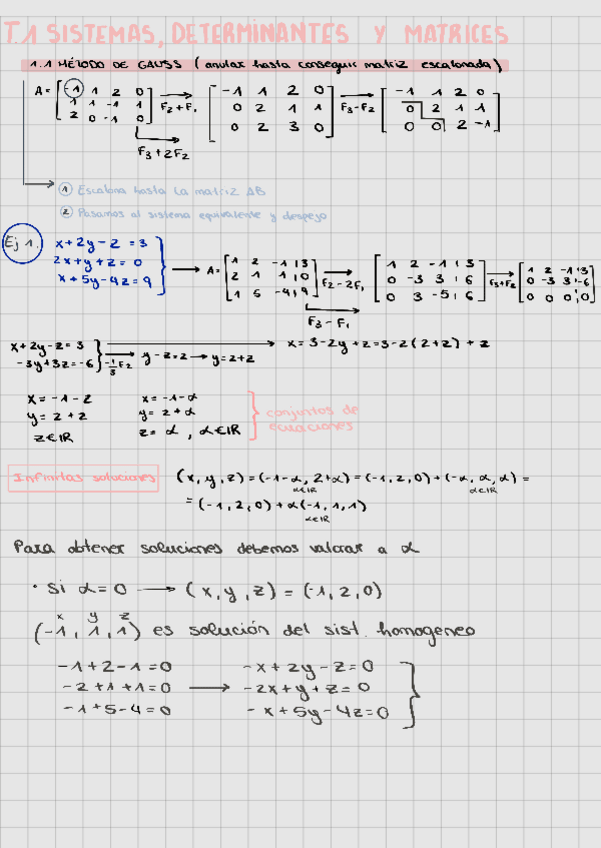 T.1 SISTEMAS, DETERMINANTES Y MATRICES
1.1 MÉTODO DE GAUSS (anular hasta conseguir matriz escalonada)
A = [ -1 1 2 0 ; 1 1 -1 1 ; 2 0 -1 0 ] → F2+F1 [ -1 1 2 0 ; 0 2 1 1 ; 0 2 3 0 ] → F3-F2 [ -1 1 2 0 ; 0 2 1 1 ; 0 0 2 -1 ]
F3+2F2
① Escalona hasta la matriz AB
② Pasamos al sistema equivalente y despejo
Ej 1.
x+2y-z=3
2x+y+z=0
x+5y-4z=9
→ A = [ 1 2 -1 | 3 ; 2 1 1 | 0 ; 1 5 -4 | 9 ] → F2-2F1 [ 1 2 -1 | 3 ; 0 -3 3 | 6 ; 0 3 -5 | 6 ] → F3+F2 [ 1 2 -1 | 3 ; 0 -3 3 | -6 ; 0 0 0 | 0 ]
F3-F1
x+2y-z=3 → x=3-2y+z=3-2(2+z)+z
-3y+3z=-6 } -1/3 F2 → y-z=2 → y=2+z
x=-1-z x=-1-α
y=2+z y=2+α
z∈IR z=α, α∈IR
conjuntos de
ecuaciones
Infinitas soluciones (x,y,z)=(-1-α, 2+α)=(-1,2,0)+(-α,α,α)=
α∈IR α∈IR
=(-1,2,0)+α(-1,1,1)
α∈IR
Para obtener soluciones debemos valorar a α
· Si α=0 → (x,y,z)=(-1,2,0)
x y z
(-1,1,1) es solución del sist. homogeneo
-1+2-1=0 -x+2y-z=0
-2+1+1=0 → -2x+y+z=0
-1+5-4=0 -x+5y-4z=0